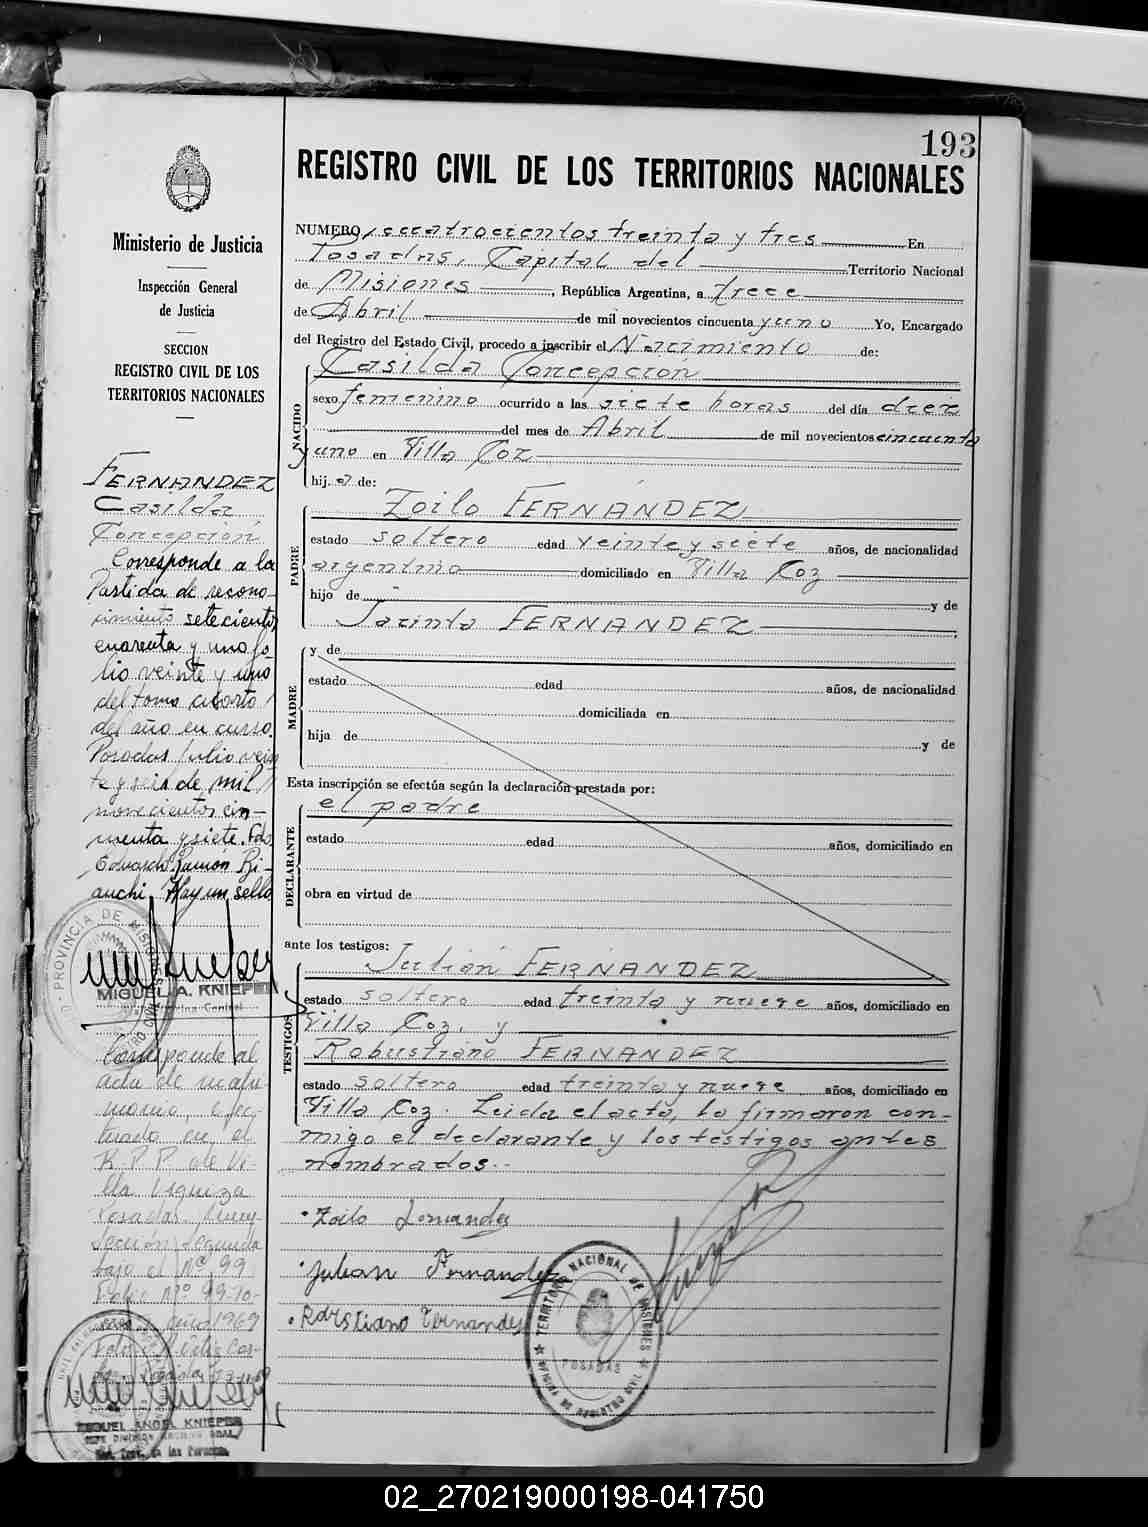 193
REGISTRO CIVIL DE LOS TERRITORIOS NACIONALES
Ministerio de Justicia
Inspección General
de Justicia
SECCION
REGISTRO CIVIL DE LOS
TERRITORIOS NACIONALES
FERNANDEZ
Casilda
Concepción
Corresponde a la
Partida de recono-
cimiento setecientos
cuarenta y uno fo-
lio veinte y uno
del tomo cuarto
del año en curso.
Posadas Julio vein
te y seis de mil
novecientos cin-
cuenta y siete. Fdo
Eduardo Ramón Bi-
anchi. Hay un sello
PROVINCIA DE MISIONES
MIGUEL A. KNIEPER
Corresponde al
acta de matri-
monio, efec-
tuado en el
R.P.P. de Vi-
lla Urquiza
Posadas,
Sección Segunda
bajo el Nº 99
Folio Nº 99
año 1969
MIGUEL ANGEL KNIEPER
NUMERO cuatrocientos treinta y tres En
Posadas, Capital del Territorio Nacional
de Misiones, República Argentina, a trece
de Abril de mil novecientos cincuenta y uno Yo, Encargado
del Registro del Estado Civil, procedo a inscribir el Nacimiento de:
NACIDO
Casilda Concepción
sexo femenino ocurrido a las siete horas del día diez
del mes de Abril de mil novecientos cincuenta
y uno en Villa Coz
hij. a de:
PADRE
Zoilo FERNÁNDEZ
estado soltero edad veinte y siete años, de nacionalidad
argentino domiciliado en Villa Coz
hijo de y de
Jacinta FERNANDEZ
MADRE
y de
estado edad años, de nacionalidad
domiciliada en
hija de y de
Esta inscripción se efectúa según la declaración prestada por:
DECLARANTE
el padre
estado edad años, domiciliado en
obra en virtud de
ante los testigos:
TESTIGOS
Julián FERNANDEZ
estado soltero edad treinta y nueve años, domiciliado en
Villa Coz. y
Robustiano FERNANDEZ
estado soltero edad treinta y nueve años, domiciliado en
Villa Coz. Leida el acta, la firmaron con-
migo el declarante y los testigos antes
nombrados.-
Zoilo Fernandez
Julian Fernandez
Fernandez
TERRITORIO NACIONAL DE MISIONES
POSADAS
02_270219000198-041750